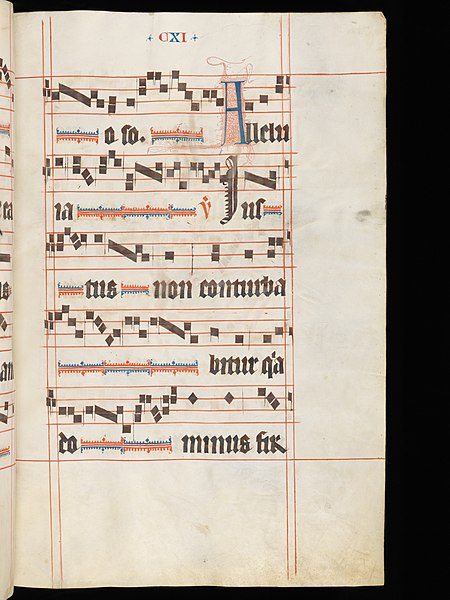 CXI
o so. Allelu
ia ℣ Jus
tus non conturba
bitur qꝛa
do minus fir